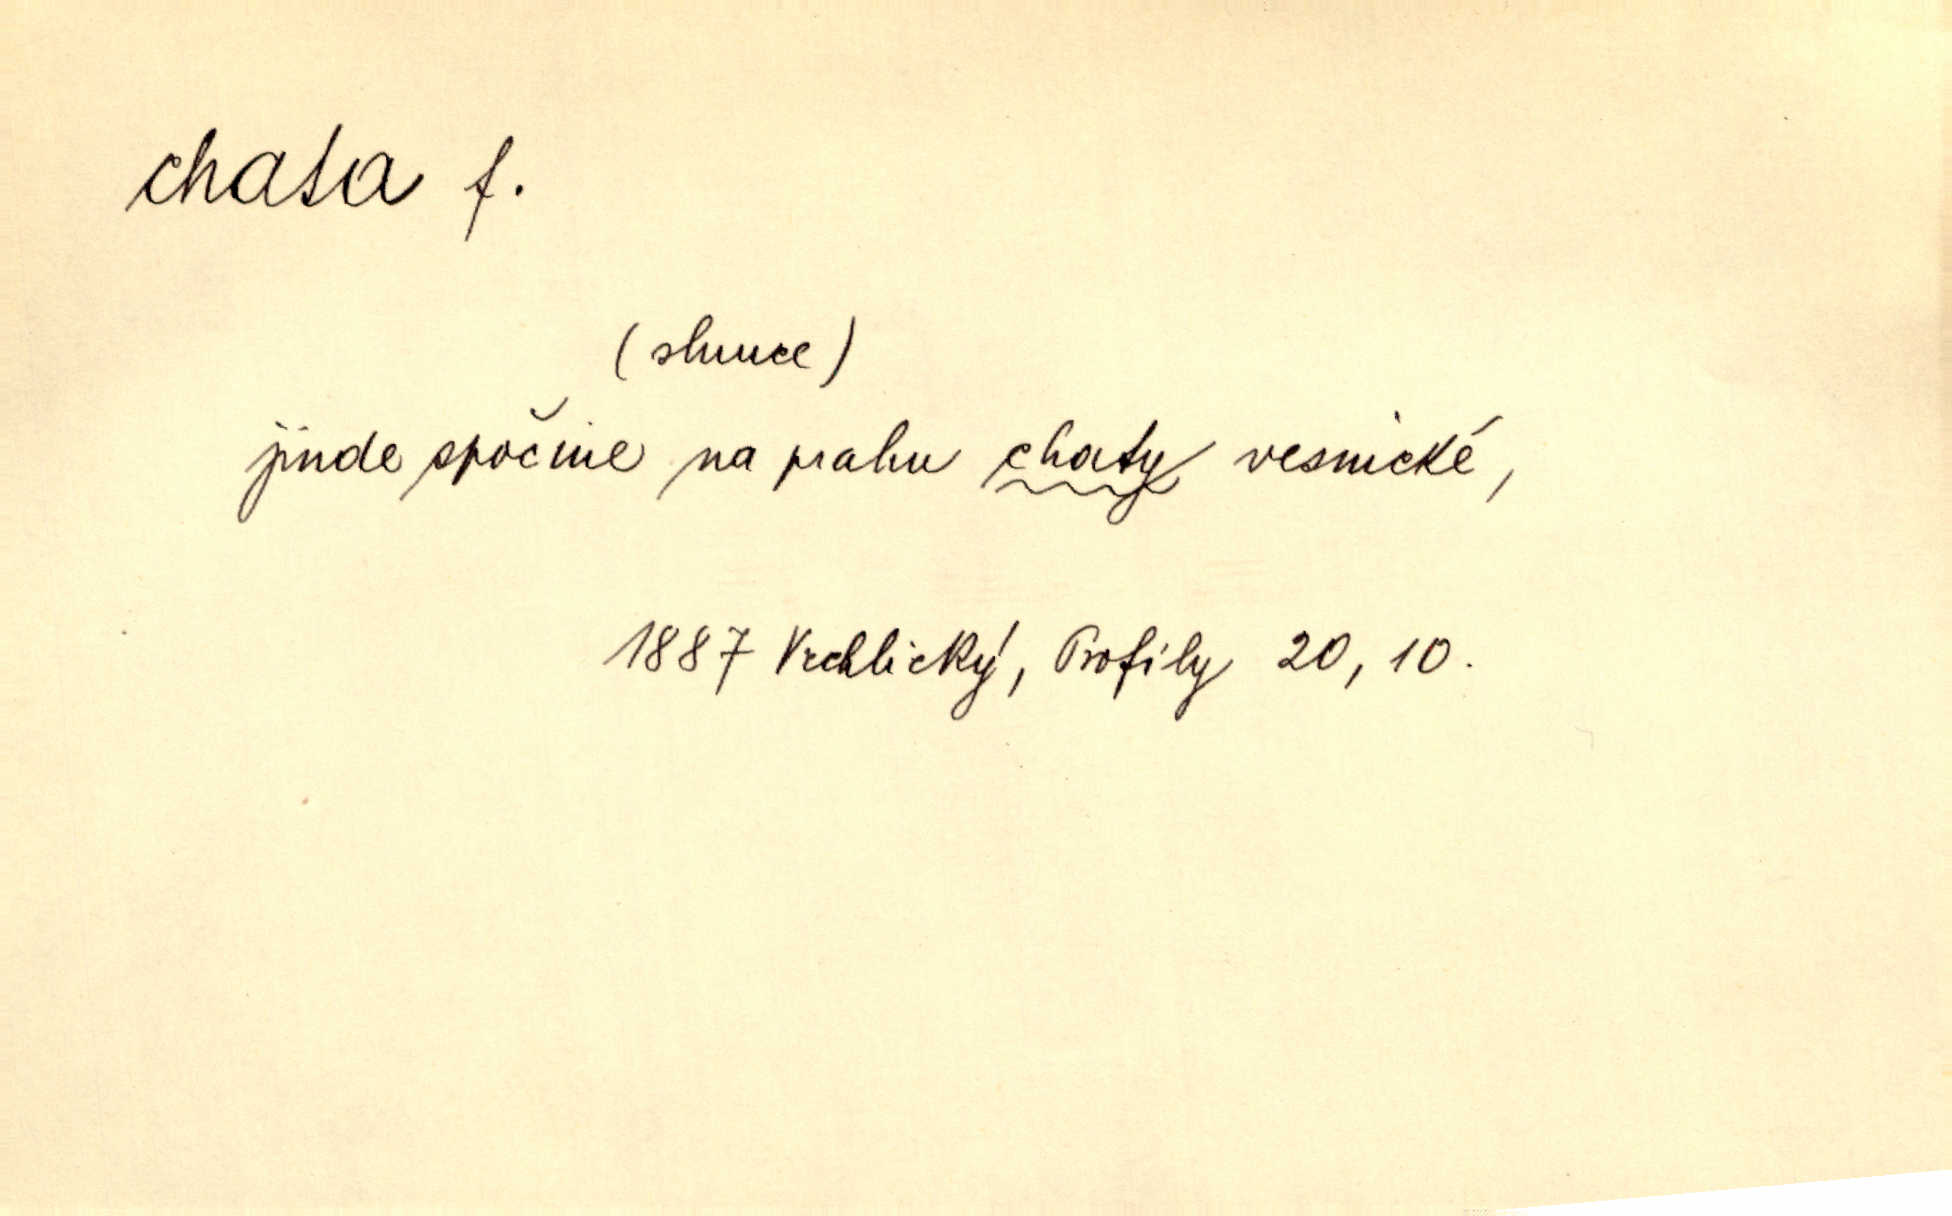 chata f.
(slunce)
jinde spočine na prahu chaty vesnické,
1887 Vrchlický, Profily 20, 10.